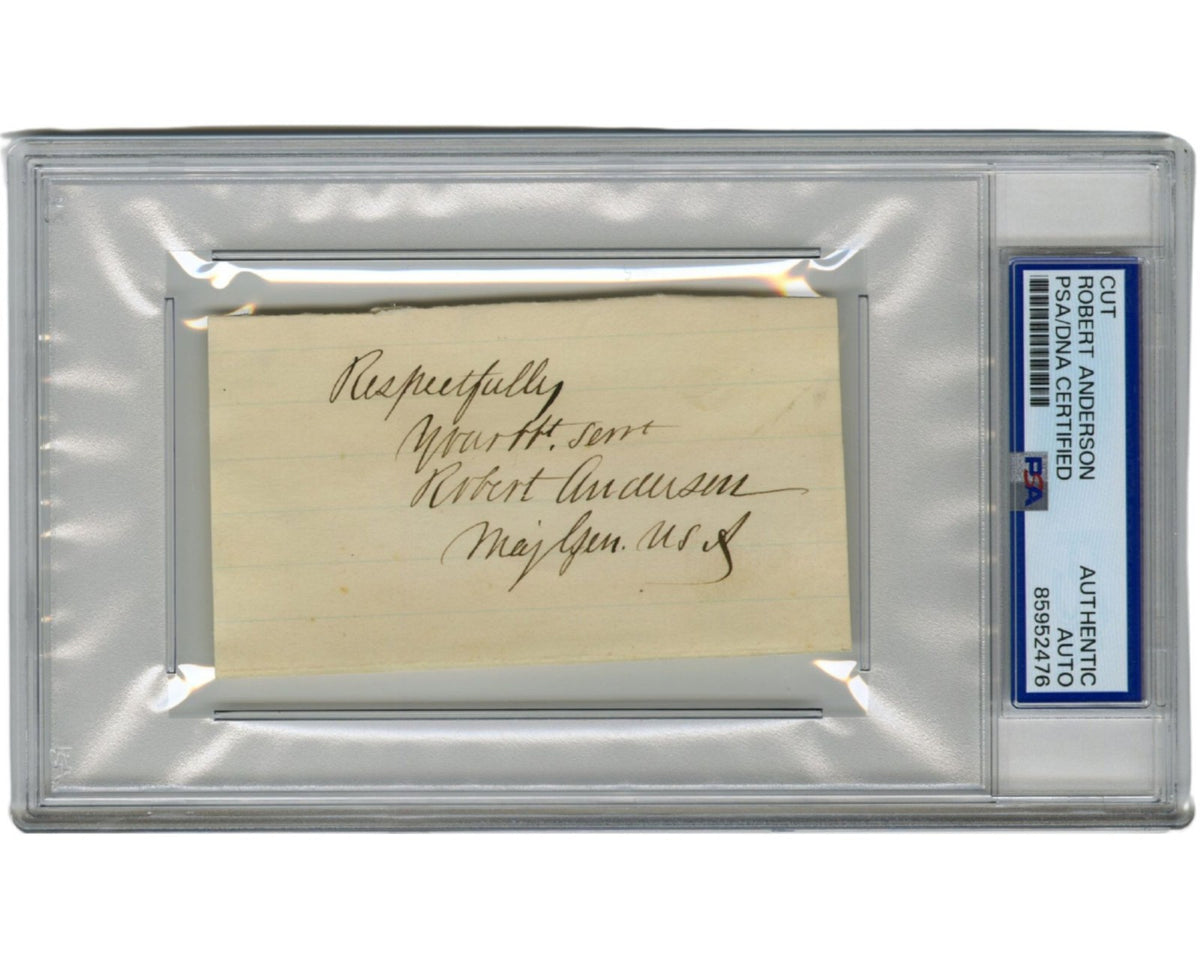 Respectfully
Your Obt. servt
Robert Anderson
Maj Gen. U S A
CUT
ROBERT ANDERSON
PSA/DNA CERTIFIED
PSA
AUTHENTIC
AUTO
85952476